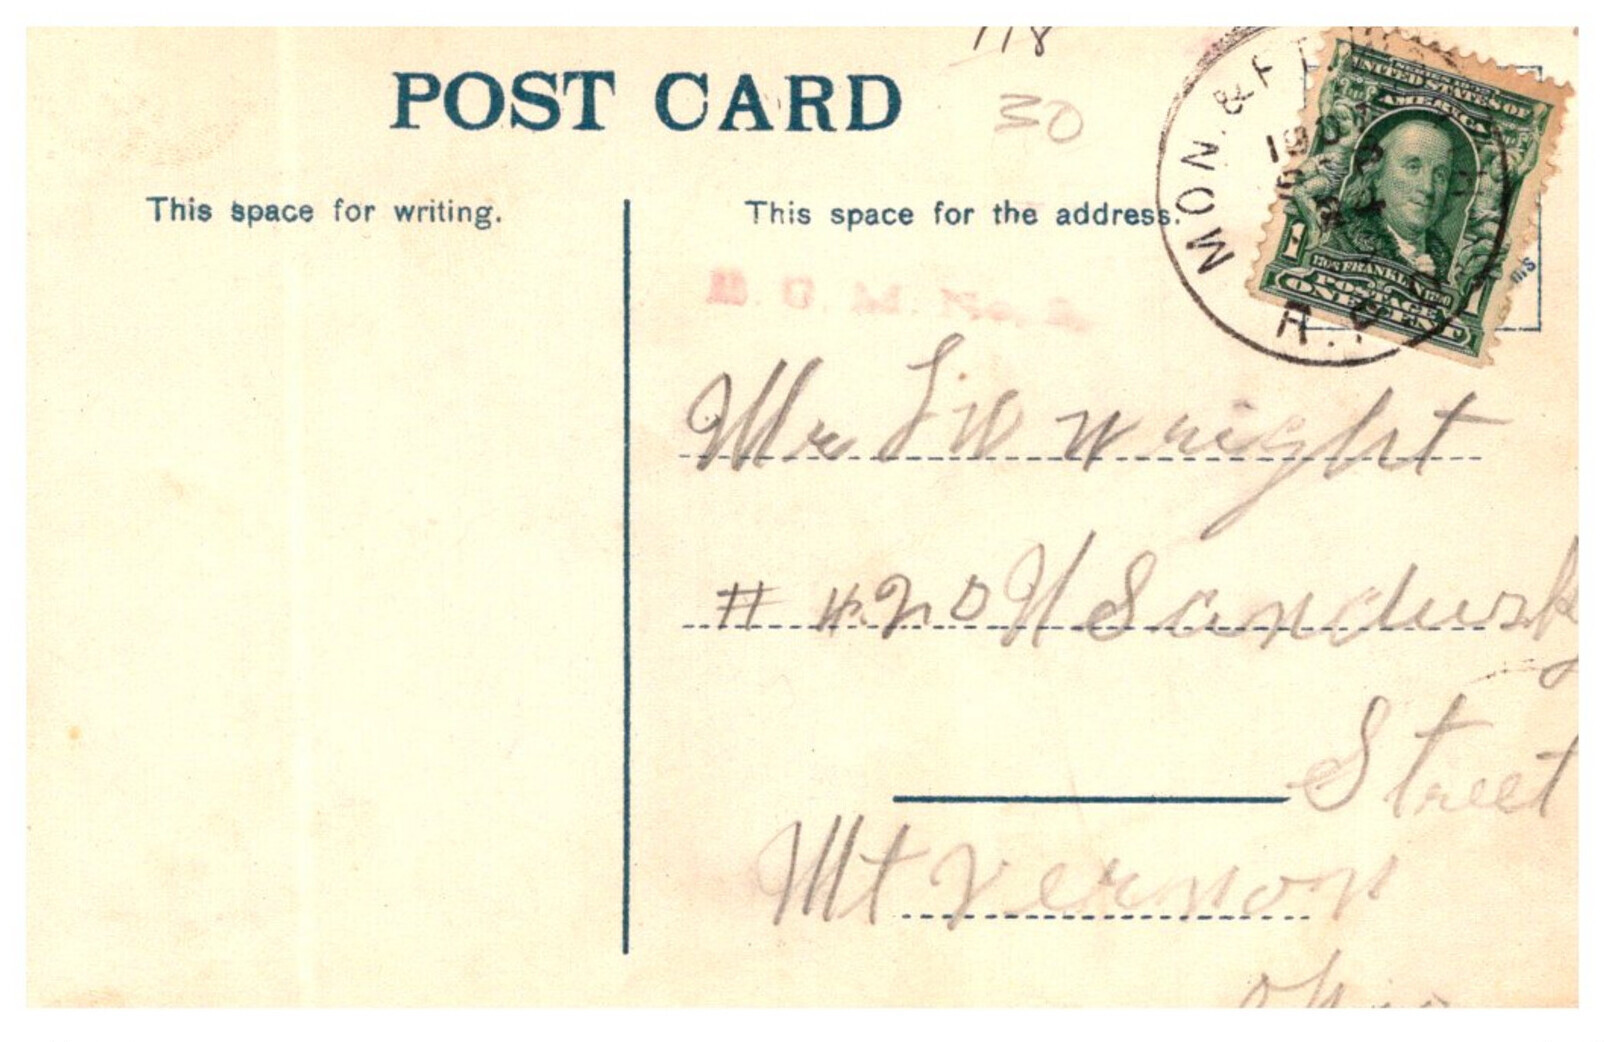 118
POST CARD
30
This space for writing.
This space for the address.
MON. & F
190
R.P.O.
SERIES 1902
UNITED STATES OF
AMERICA
1706 FRANKLIN 1790
POSTAGE
ONE CENT
1 1
Mr L W Wright
# 420 N Sandusky
Street
Mt Vernon
Ohio